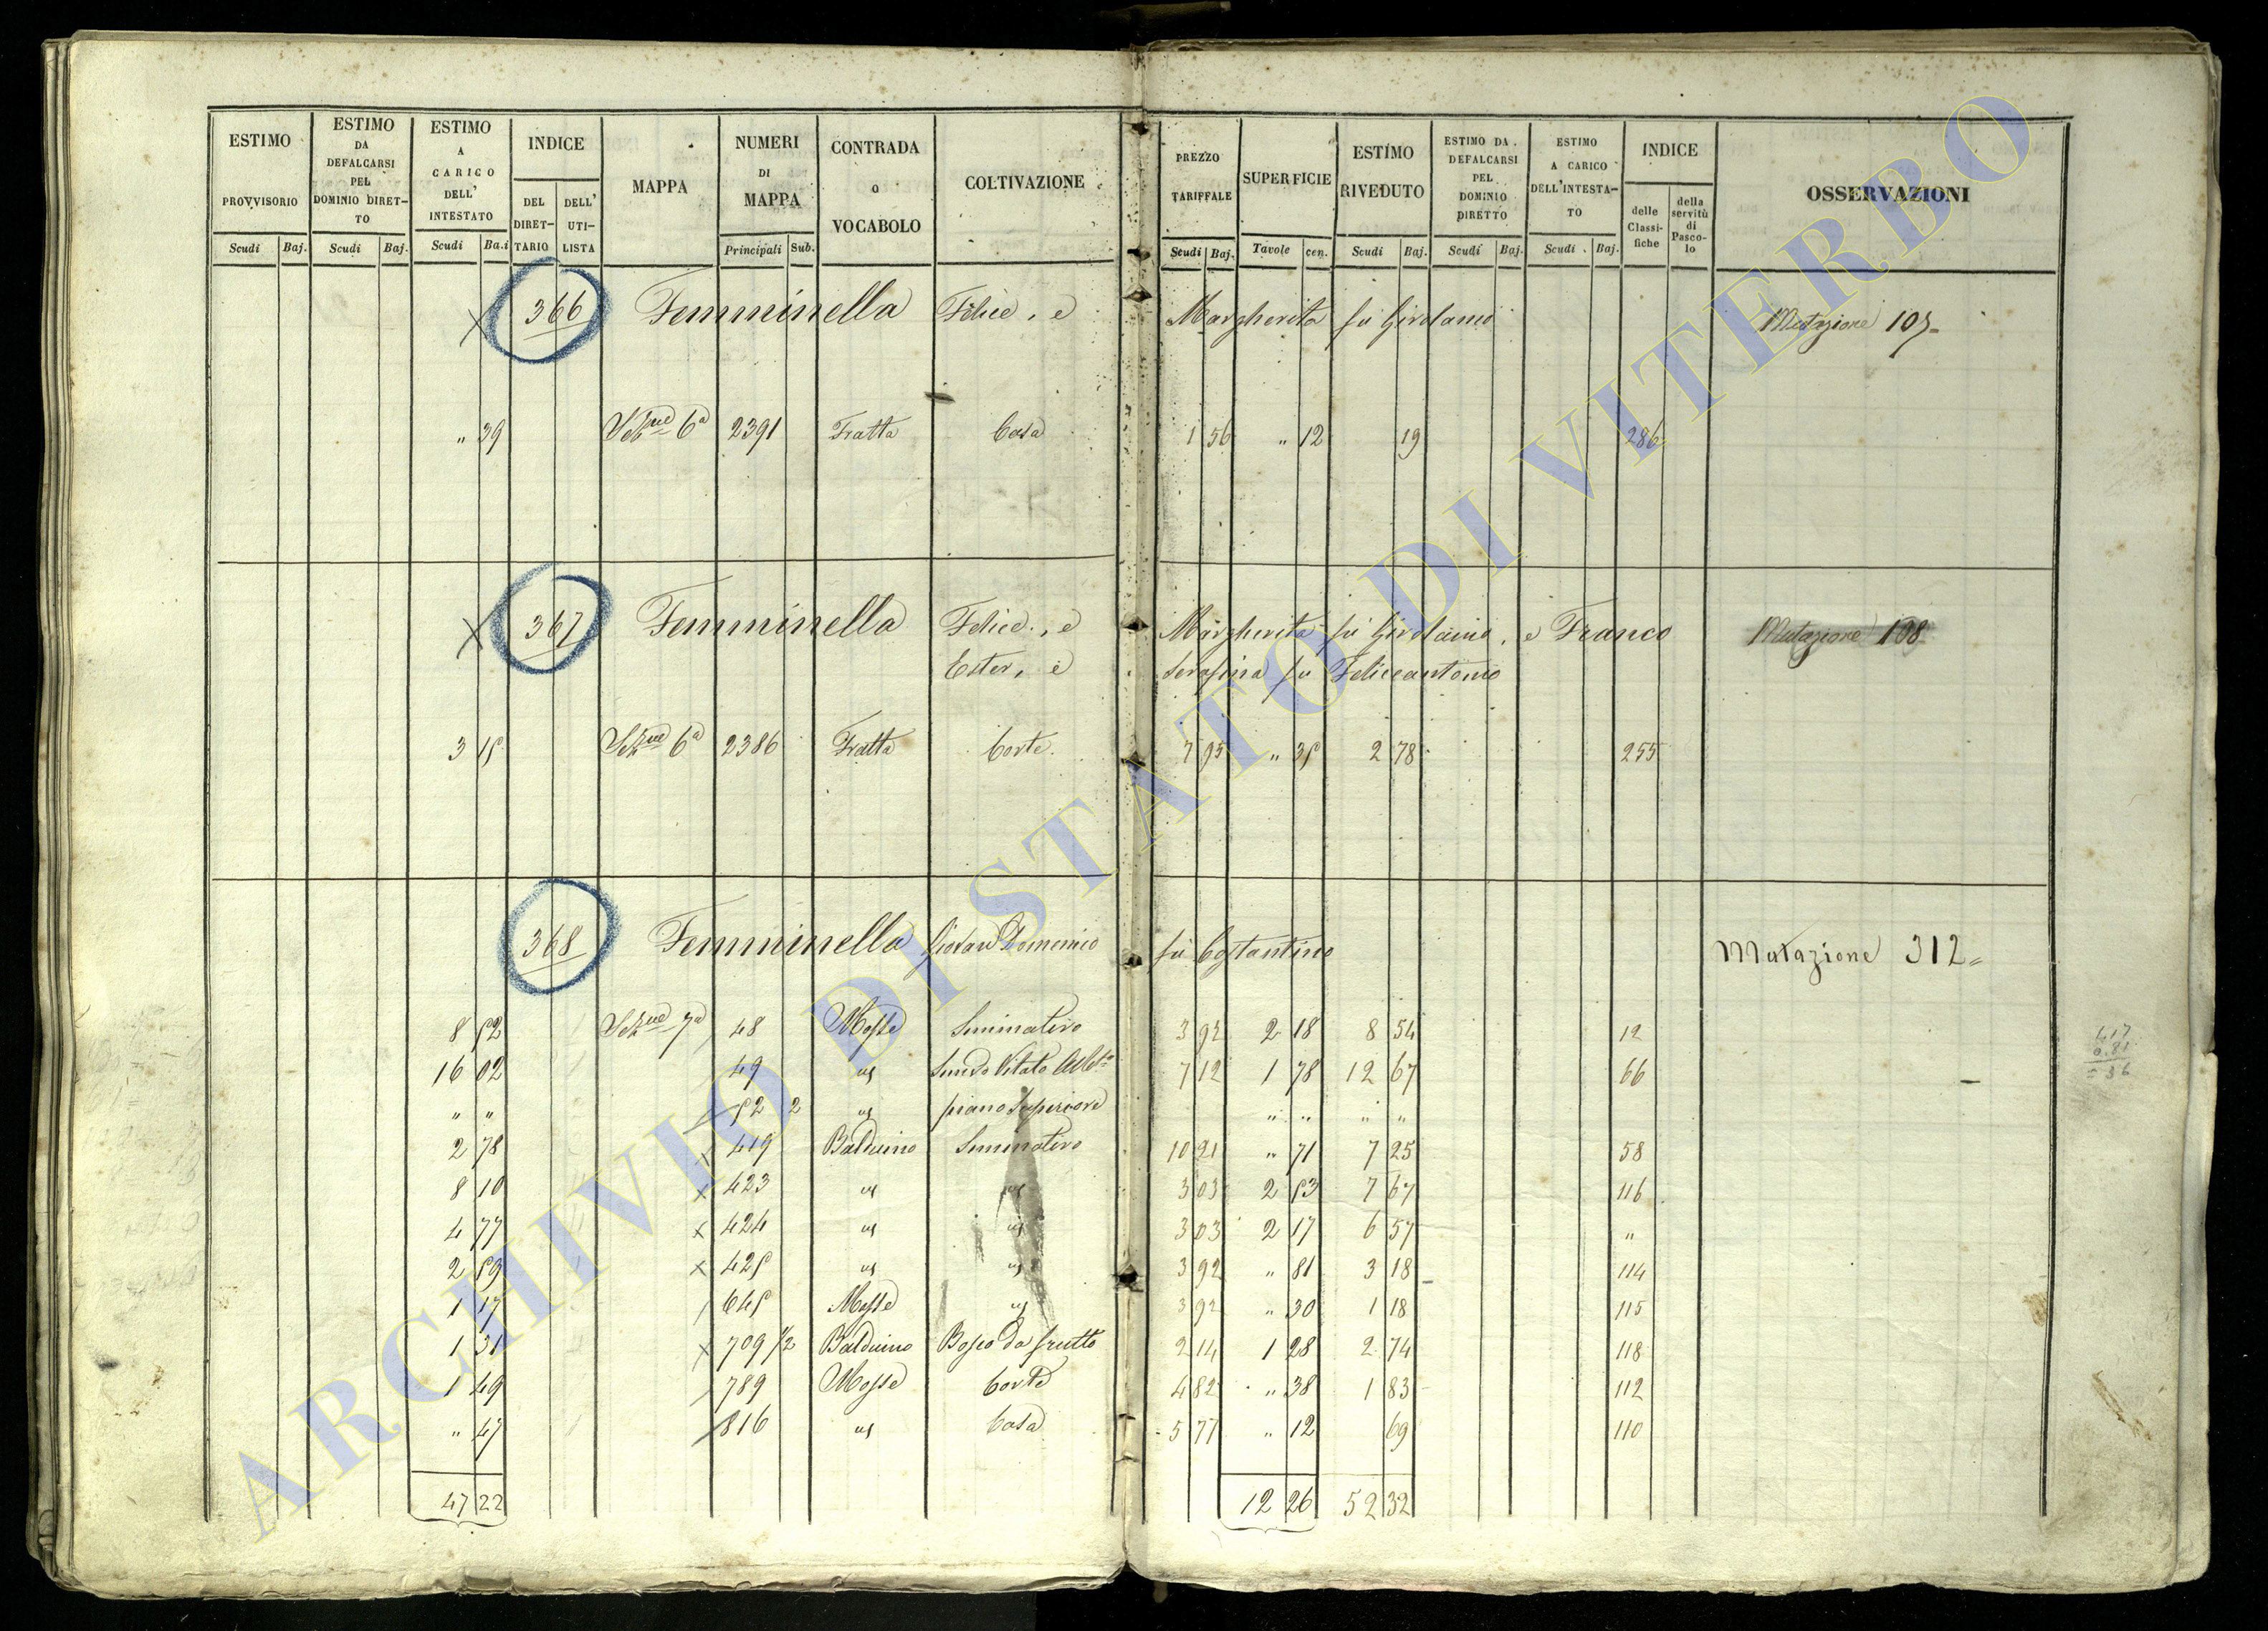 ESTIMO PROVVISORIO Scudi Baj.
ESTIMO DA DEFALCARSI PEL DOMINIO DIRET-TO Scudi Baj.
ESTIMO A CARICO DELL' INTESTATO Scudi Ba.i
INDICE DEL DIRET-TARIO DELL' UTI-LISTA
MAPPA
NUMERI DI MAPPA Principali Sub.
CONTRADA o VOCABOLO
COLTIVAZIONE
PREZZO TARIFFALE Scudi Baj.
SUPERFICIE Tavole cen.
ESTIMO RIVEDUTO Scudi Baj.
ESTIMO DA DEFALCARSI PEL DOMINIO DIRETTO Scudi Baj.
ESTIMO A CARICO DELL'INTESTA-TO Scudi Baj.
INDICE delle Classi-fiche della servitù di Pasco-lo
OSSERVAZIONI
366 Femminella Felice, e Margherita fu Girolamo Mutazione 105
" 39 Sez.ne 6a 2391 Fratta Casa 1 56 " 12 19 286
367 Femminella Felice, e Margherita fu Girolamo, e Franco Mutazione 108
Ester, e Serafina fu Feliceantonio
3 15 Sez.ne 6a 2386 Fratta Corte 7 95 " 35 2 78 255
368 Femminella Giovan Domenico fu Costantino Mutazione 312
8 52 Sez.ne 7a 48 Mosse Seminativo 3 92 2 18 8 54 12
16 02 49 " 7 12 1 78 12 67 66
" " 52 2 " piano Superiore " " " "
2 78 419 Balduino Seminativo 10 21 " 71 7 25 58
8 10 423 " " 3 03 2 53 7 67 116
4 77 424 " " 3 03 2 17 6 57 "
2 59 425 " " 3 92 " 81 3 18 114
1 17 645 Mosse " 3 92 " 30 1 18 115
1 31 709 1/2 Balduino Bosco da frutto 2 14 1 28 2 74 118
1 49 789 Mosse Corte 4 82 " 38 1 83 112
" 47 816 " Casa 5 77 " 12 69 110
47 22 12 26 52 32
ARCHIVIO DI STATO DI VITERBO